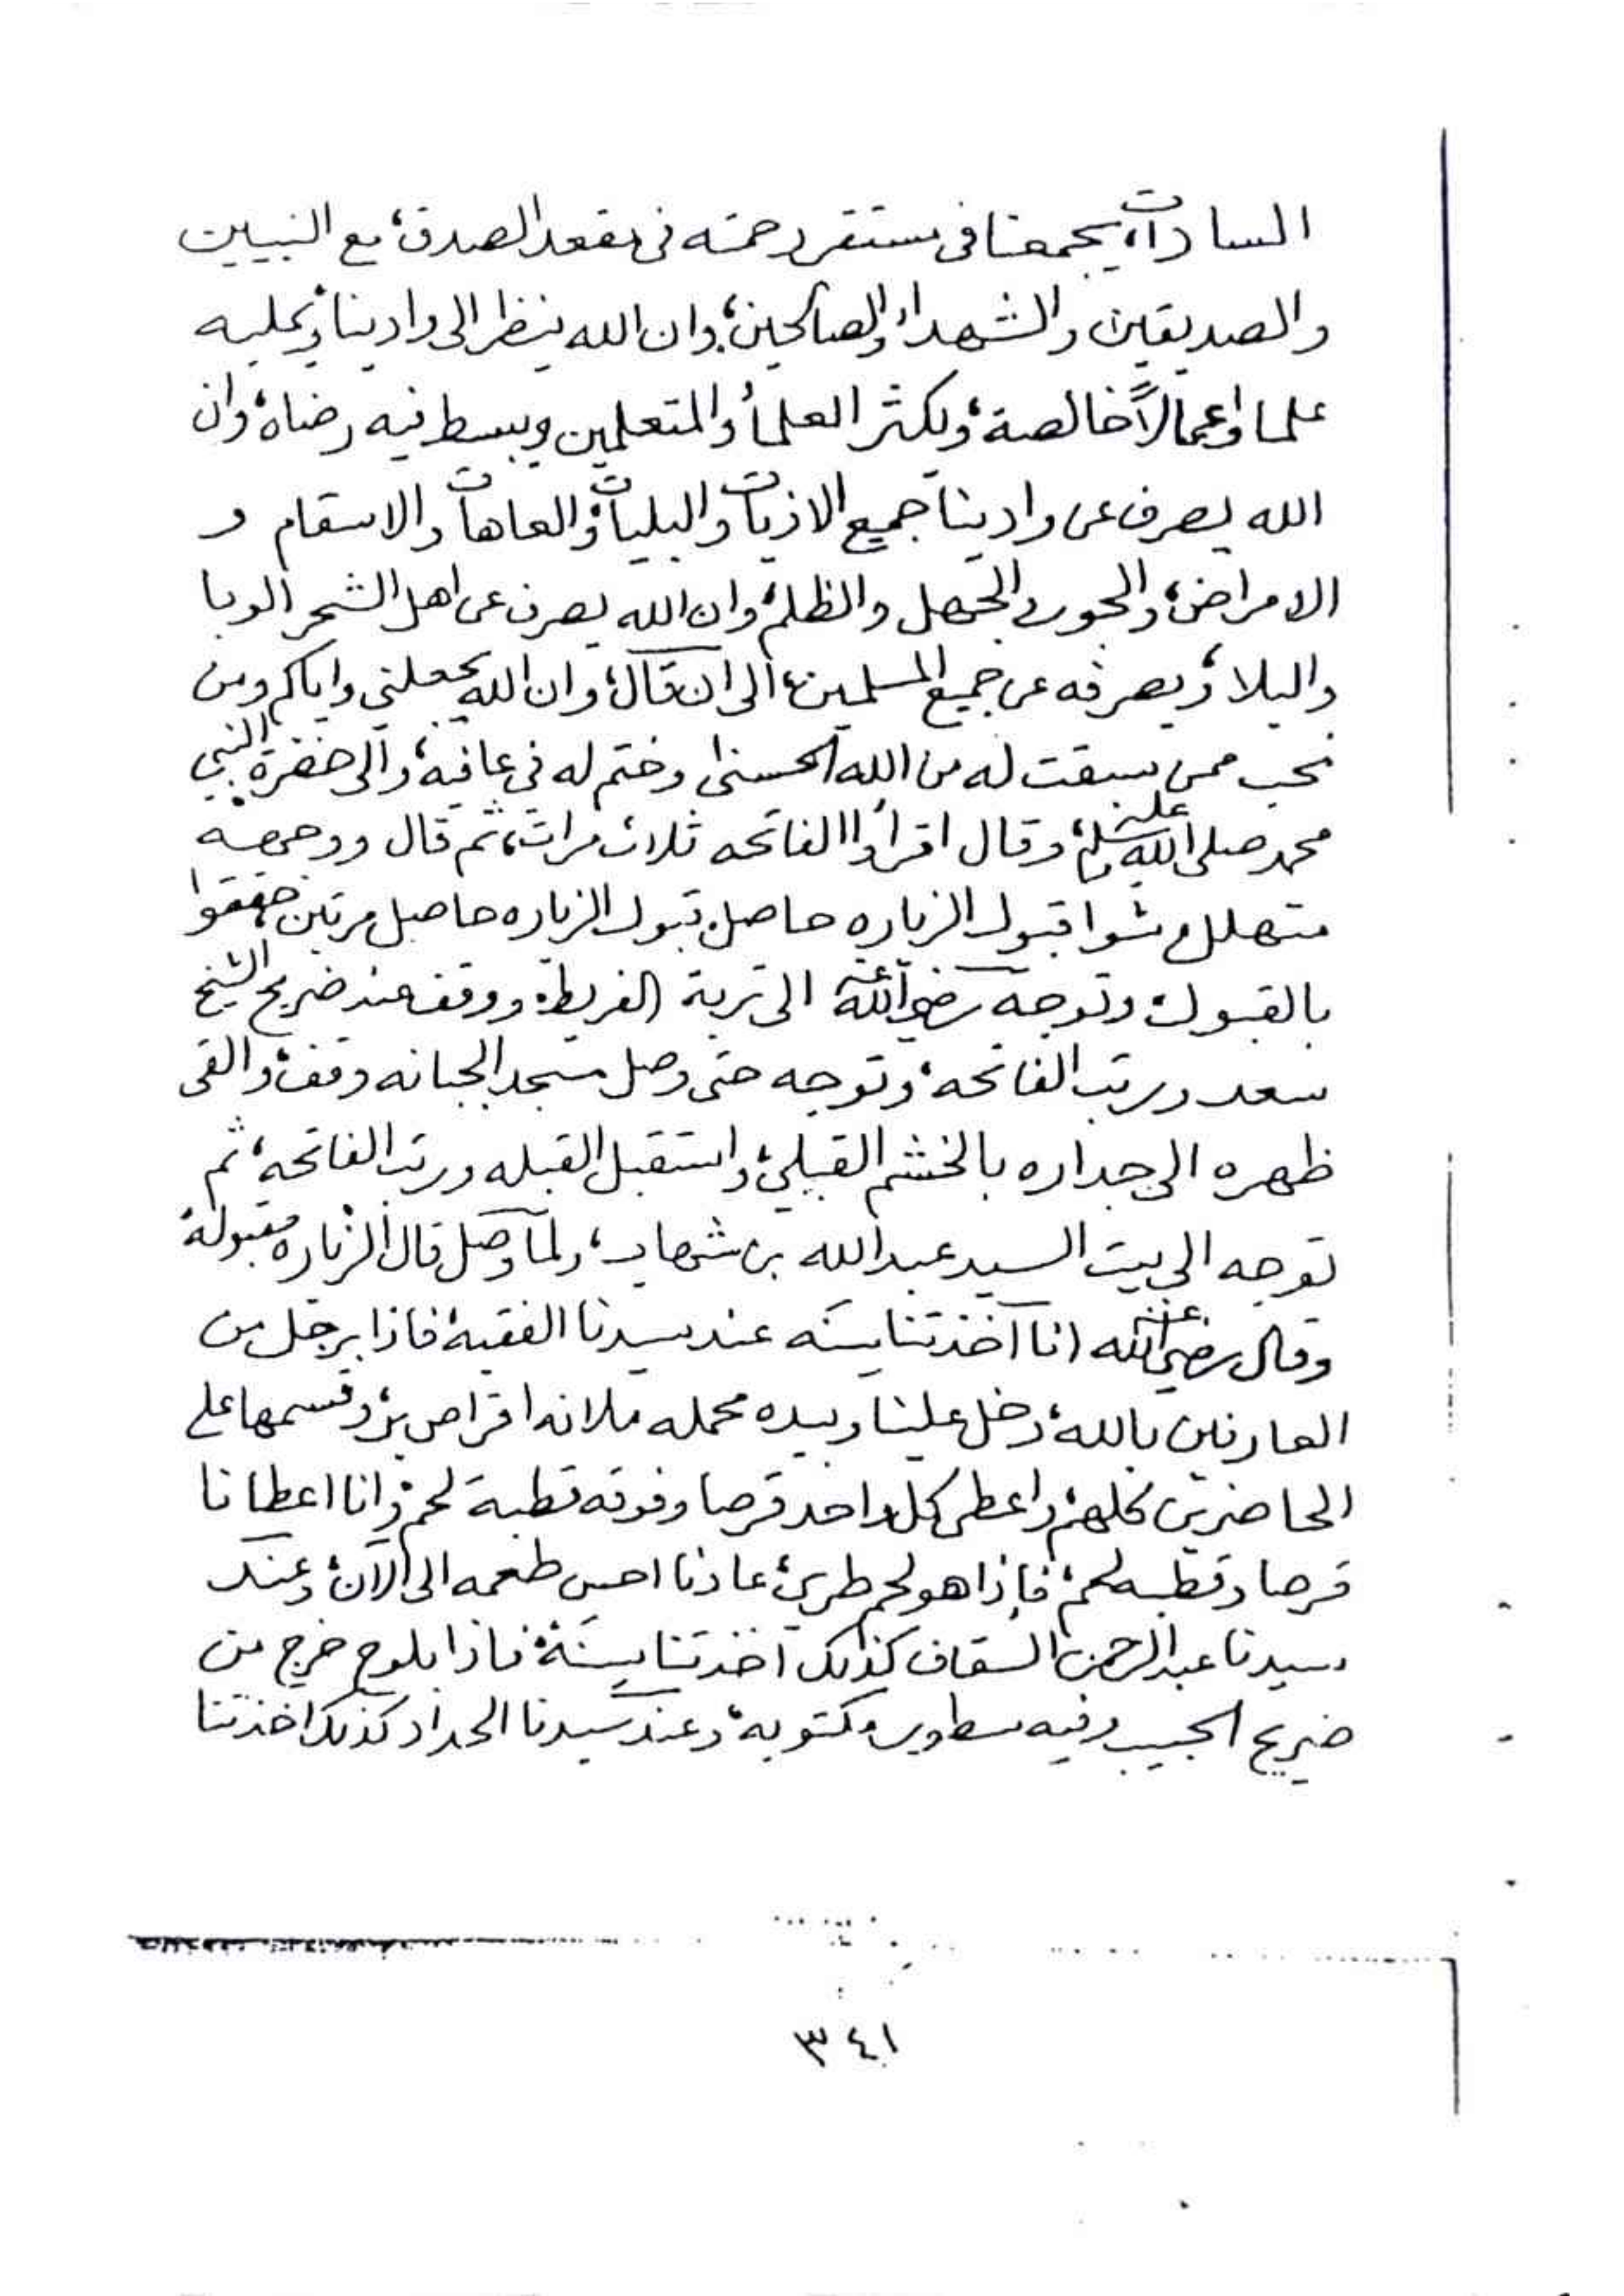 السادات، يجمعنا فى مستقر رحمته فى مقعد الصدق، مع النبيين
والصديقين والشهداء والصالحين، وان الله ينظر الى وادينا ويحليه
علما واعمالاً خالصة، ويكثر العلماء والمتعلمين ويبسط فيه رضاه، وان
الله يصرف عن وادينا جميع الاذيات والبليات، والعاهات والاسقام و
الامراض، والجور والجهل والظلم، وان الله يصرف عن اهل الشحر الوبا
والبلاء، ويصرفه عن جميع المسلمين، الى ان قال، وان الله يجعلني واياكم ومن
نحب ممن سبقت له من الله الحسنى وختم له فى عافية، والى حضرة النبي
محمد صلى الله عليه وسلم، وقال اقرأوا الفاتحه ثلاث مرات، ثم قال ووجهه
متهلل قبول الزياره حاصل، قبول الزياره حاصل مرتين حققوا
بالقبول، وتوجه رضي الله عنه الى تربة الفريط، ووقف عند ضريح الشيخ
سعد ورتب الفاتحه، وتوجه حتى وصل مسجد الجبانه وقف، والقى
ظهره الى جداره بالخشم القبلي، واستقبل القبله ورتب الفاتحه، ثم
توجه الى بيت السيد عبدالله بن شهاب، ولما وصل قال الزياره مقبولة،
وقال رضي الله عنه انا آخذتنا سنه عند سيدنا الفقيه، فاذا برجل من
العارفين بالله، دخل علينا وبيده محمله ملانه اقراص بر، وقسمها على
الحاضرين كلهم، واعطى كل واحد قرصا وفوقه قطبة لحم، وانا اعطانا
قرصا وقطبه لحم، فإذا هو لحم طري، عادنا احس طعمه الى الآن، وعند
سيدنا عبدالرحمن السقاف كذلك اخذتنا سنة، فاذا بلوح خرج من
ضريح الحبيب وفيه سطور مكتوبه، وعند سيدنا الحداد كذلك اخذتنا
٣٤١